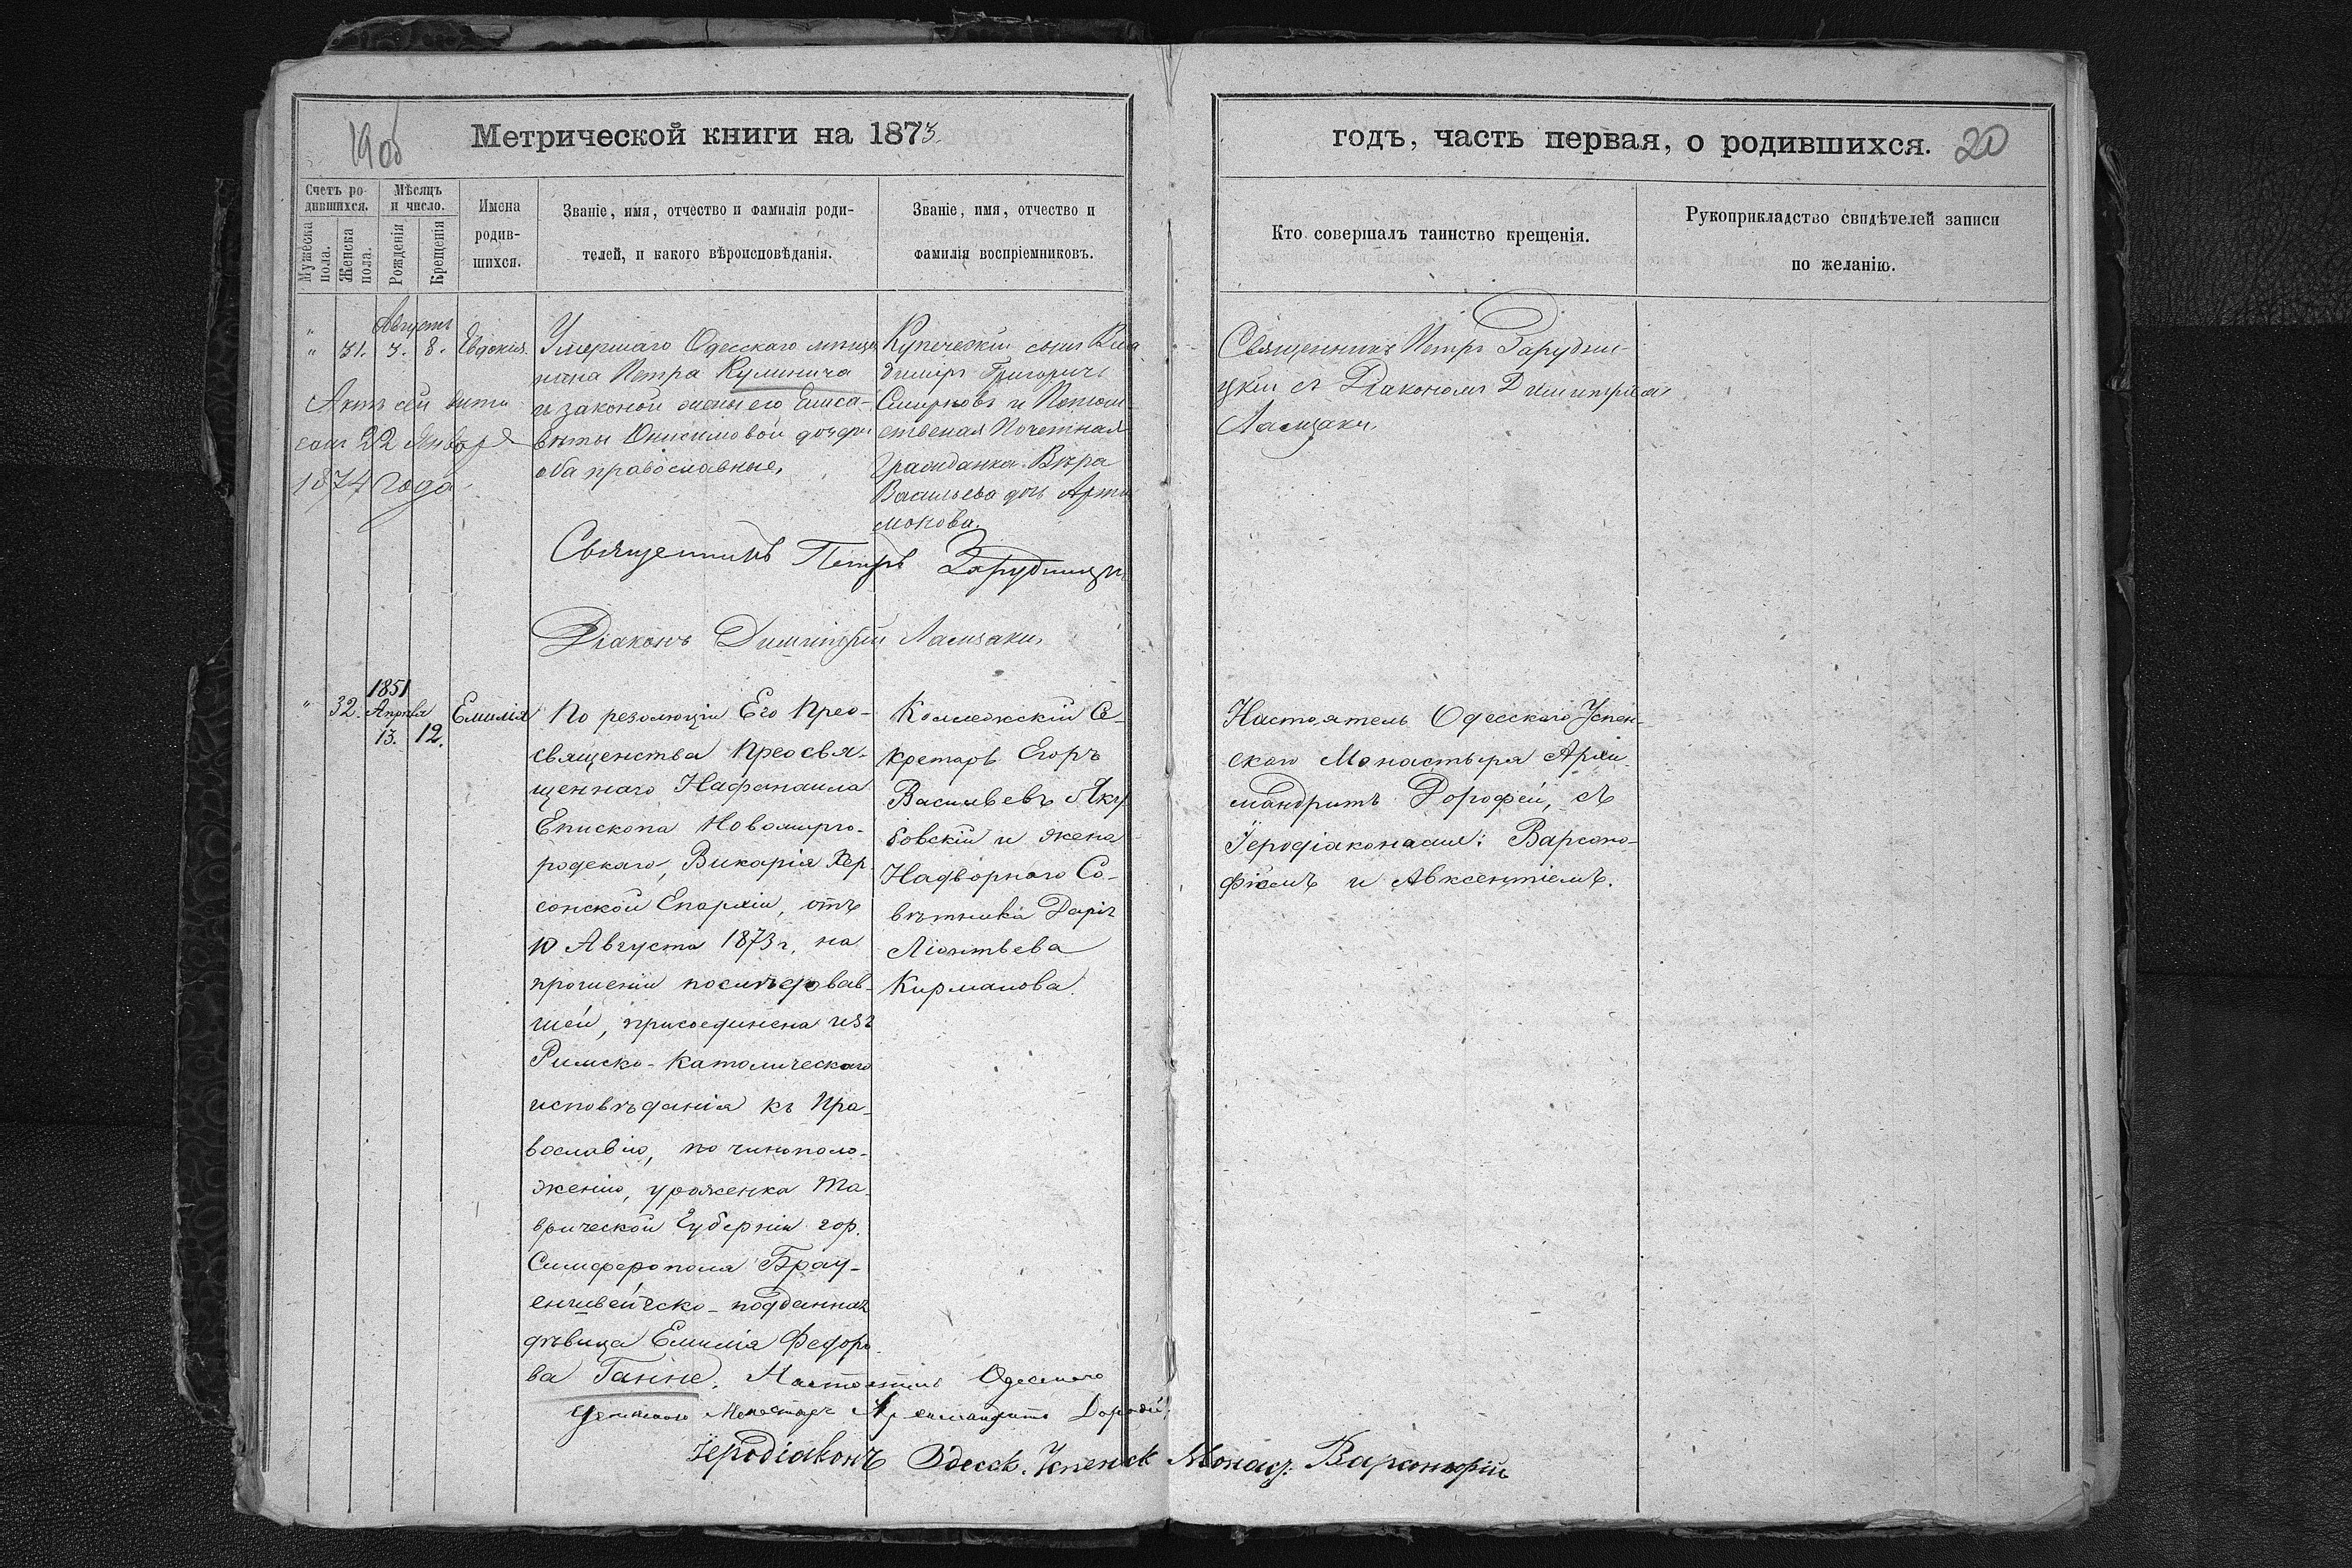 Метрической книги на 1873.
годъ, часть первая, о родившихся. 20
Счетъ родившихся.
Мужеска пола.
Женска пола.
Мѣсяцъ и число.
Рожденія
Крещенія
Имена родившихся.
Званіе, имя, отчество и фамилія роди-
телей, и какого вѣроисповѣданія.
Званіе, имя, отчество и
фамилія воспріемниковъ.
Кто совершалъ таинство крещенія.
Рукоприкладство свидѣтелей записи
по желанію.
Августъ
" 31. 3. 8. Евдокія.
Актъ сей
22 Января
1874 года
Умершаго Одесскаго мѣща
нина Петра Кулинича
и законой жены его Елиса-
веты Онисимовой дочери
оба православные,
Купеческій сынъ Вла
димиръ Григорьевъ
Смирновъ и Потом
ственая Почетная
Гражданка Вѣра
Васильева дочь Арта
монова.
Священникъ Петръ Заруд
цкій съ Діакономъ Димитріемъ
Ламзаки,
Священникъ Петръ
Діаконъ Димитрій Ламзаки,
" 32. 1851 Апрѣля 13. 12. Емилія
По резолюціи Его Прео-
священства Преосвя-
щеннаго Нафанаила
Епископа Новомирго-
родскаго, Викарія Хер
сонской Епархіи, отъ
10 Августа 1873 г. на
прошеніи послѣдовав-
шей, присоединена изъ
Римско-Католическаго
исповѣданія къ Пра-
вославію, по чинополо-
женію, уроженка Та-
врической Губерніи гор.
Симферополя Брау-
еншвейгско-подданная
дѣвица Емилія Федоро-
ва Ганне.
Коллежскій Се-
кретарь Егоръ
Васильевъ Яку
бовскій и жена
Надворнаго Со-
вѣтника Дарія
Ліонтьева
Кирмалова.
Настоятель Одесскаго Успен-
скаго Монастыря Архи-
мандритъ Дорофей, съ
Іеродіаконами: Варсоно-
фіемъ и Авксентіемъ.
Настоятель Одесскаго
Успенскаго Монастыря Архимандритъ Дорофей.
Іеродіаконъ Одесск. Успенск Монас. Варсонофій